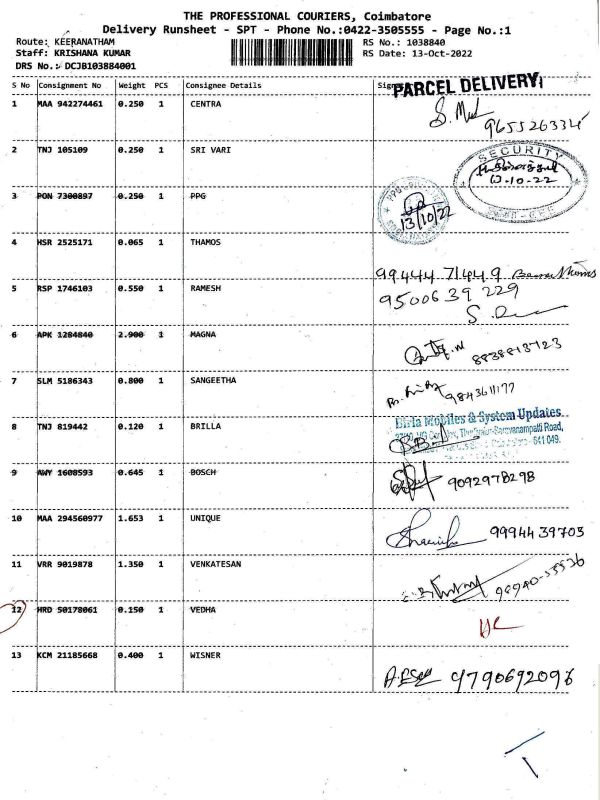 THE PROFESSIONAL COURIERS, Coimbatore
Delivery Runsheet - SPT - Phone No.:0422-3505555 - Page No.:1
Route: KEERANATHAM RS No.: 1038840
Staff: KRISHANA KUMAR RS Date: 13-Oct-2022
DRS No.: DCJB103884001
S No Consignment No Weight PCS Consignee Details Sig
PARCEL DELIVERY
1 MAA 942274461 0.250 1 CENTRA
9655263345
2 TNJ 105109 0.250 1 SRI VARI
SECURITY
13-10-22
3 PON 7300897 0.250 1 PPG
13/10/22
4 HSR 2525171 0.065 1 THAMOS
99444 71449
5 RSP 1746103 0.550 1 RAMESH
9500639229
6 APK 1284840 2.900 1 MAGNA
8838813723
7 SLM 5186343 0.800 1 SANGEETHA
9843611177
8 TNJ 819442 0.120 1 BRILLA
Birla Mobiles & System Updates
Saravanampatti Road,
641 049.
9 AWY 1608593 0.645 1 BOSCH
9092978298
10 MAA 294560977 1.653 1 UNIQUE
9994439703
11 VRR 9019878 1.350 1 VENKATESAN
12 HRD 50178061 0.150 1 VEDHA
13 KCM 21185668 0.400 1 WISNER
9790692096